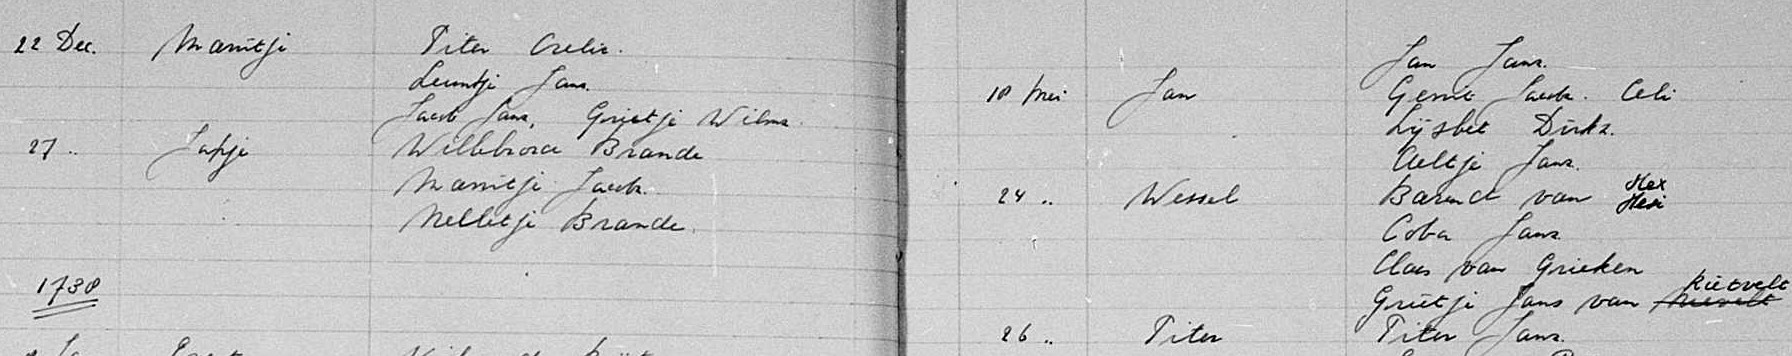 22 Dec. Marritje Piter Crelis.
Leuntje Jans.
Jacob Jans, Grietje Wilms.
27 „ Japje Willebrord Brande
Marritje Jacobs.
Nelletje Brande.
1738
Jan Jans.
18 Mei Jan Gerrit Jacobs. Celi
Lijsbet Dirks.
Aeltje Jans.
24 „ Wessel Barend van Hex
Coba Jans.
Claes van Grieken
Rietvelt
Grietje Jans van
26 „ Piter Piter Jans.